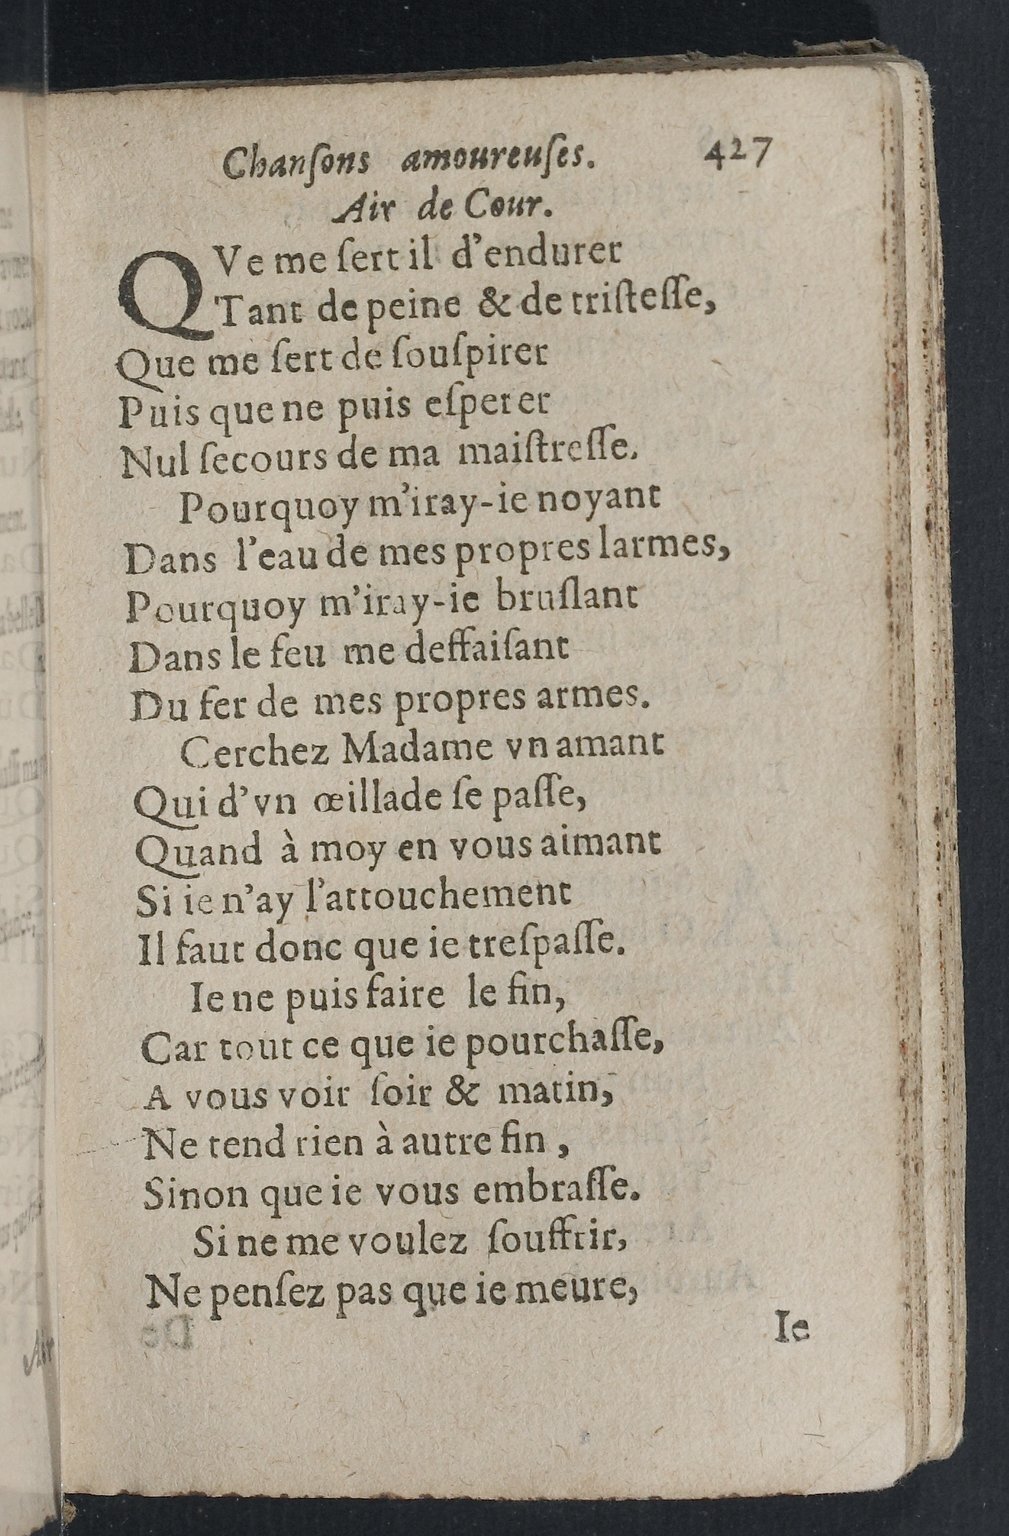 Chanſons amoureuſes. 427
Air de Cour.
QVe me ſert il d'endurer
Tant de peine & de triſteſſe,
Que me ſert de ſouſpirer
Puis que ne puis eſperer
Nul ſecours de ma maiſtreſſe.
Pourquoy m'iray-ie noyant
Dans l'eau de mes propres larmes,
Pourquoy m'iray-ie bruſlant
Dans le feu me deffaiſant
Du fer de mes propres armes.
Cerchez Madame vn amant
Qui d'vn œillade ſe paſſe,
Quand à moy en vous aimant
Si ie n'ay l'attouchement
Il faut donc que ie treſpaſſe.
Ie ne puis faire le fin,
Car tout ce que ie pourchaſſe,
A vous voir ſoir & matin,
Ne tend rien à autre fin,
Sinon que ie vous embraſſe.
Si ne me voulez ſouffrir,
Ne penſez pas que ie meure,
Ie